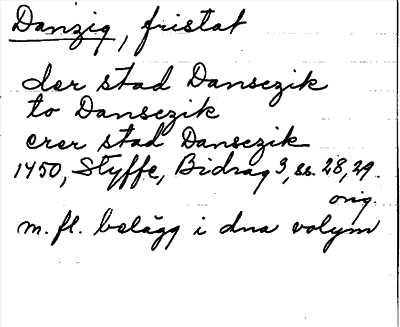 Danzig, fristat
der stad Dansczik
to Dansczik
erer stad Dansczik
1450, Styffe, Bidrag 3, ss. 28, 29.
orig.
m. fl. belägg i dna volym